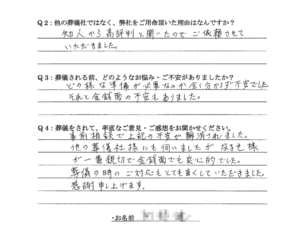 Q2：他の葬儀社ではなく、弊社をご用命頂いた理由はなんですか？
知人から高評判と聞いたのでご依頼させて
いただきました。
Q3：葬儀される前、どのようなお悩み・ご不安がありましたか？
どの様な準備が必要なのか全く分からず不安でした
それと金銭面の不安もありました。
Q4：葬儀をされて、率直なご意見・ご感想をお聞かせください。
事前相談で上記の不安が解消されました。
他の葬儀社様にも伺いましたがなるを様
が一番親切で金銭面でも良心的でした。
葬儀の時のご対応もとても良くしていただきました。
感謝申し上げます。
・お名前